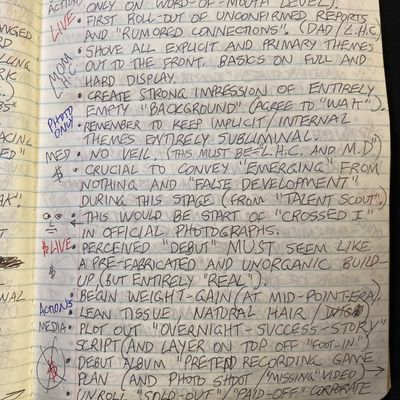 ANGED
RD
LLING
RK
.)
BS"
ACING
ED"
AK".
NAL
ACTION
ONLY ON WORD-OF-MOUTH LEVEL).
LIVE • FIRST ROLL-OUT OF UNCONFIRMED REPORTS
AND "RUMORED CONNECTIONS". (DAD/L.H.C.)
MOM • SHOVE ALL EXPLICIT AND PRIMARY THEMES
L.H.C. OUT TO THE FRONT. BASICS ON FULL AND
HARD DISPLAY.
• CREATE STRONG IMPRESSION OF ENTIRELY
EMPTY "BACKGROUND" (AGREE TO "WAIT").
PHOTO ONLY • REMEMBER TO KEEP IMPLICIT/INTERNAL
THEMES ENTIRELY SUBLIMINAL.
MED • NO VEIL. (THIS MUST BE L.H.C. AND M.D.")
$ • CRUCIAL TO CONVEY "EMERGING" FROM
NOTHING AND "FALSE DEVELOPMENT"
DURING THIS STAGE (FROM "TALENT SCOUT".)
• THIS WOULD BE START OF "CROSSED I"
IN OFFICIAL PHOTOGRAPHS.
$LIVE • PERCEIVED "DEBUT" MUST SEEM LIKE
$ A PRE-FABRICATED AND UNORGANIC BUILD-
UP (BUT ENTIRELY "REAL").
• BEGIN WEIGHT-GAIN (AT MID-POINT-ERA).
ACTIONS • LEAN TISSUE, NATURAL HAIR /
MEDIA • PLOT OUT "OVERNIGHT-SUCCESS-STORY"
SCRIPT (AND LAYER ON TOP OFF "FOOT-IN")
$ • DEBUT ALBUM "PRETEND RECORDING GAME
PLAN (AND PHOTO SHOOT / "MISSING" VIDEO) →
• UNROLL "SOLD-OUT"/"PAID-OFF" CORPORATE